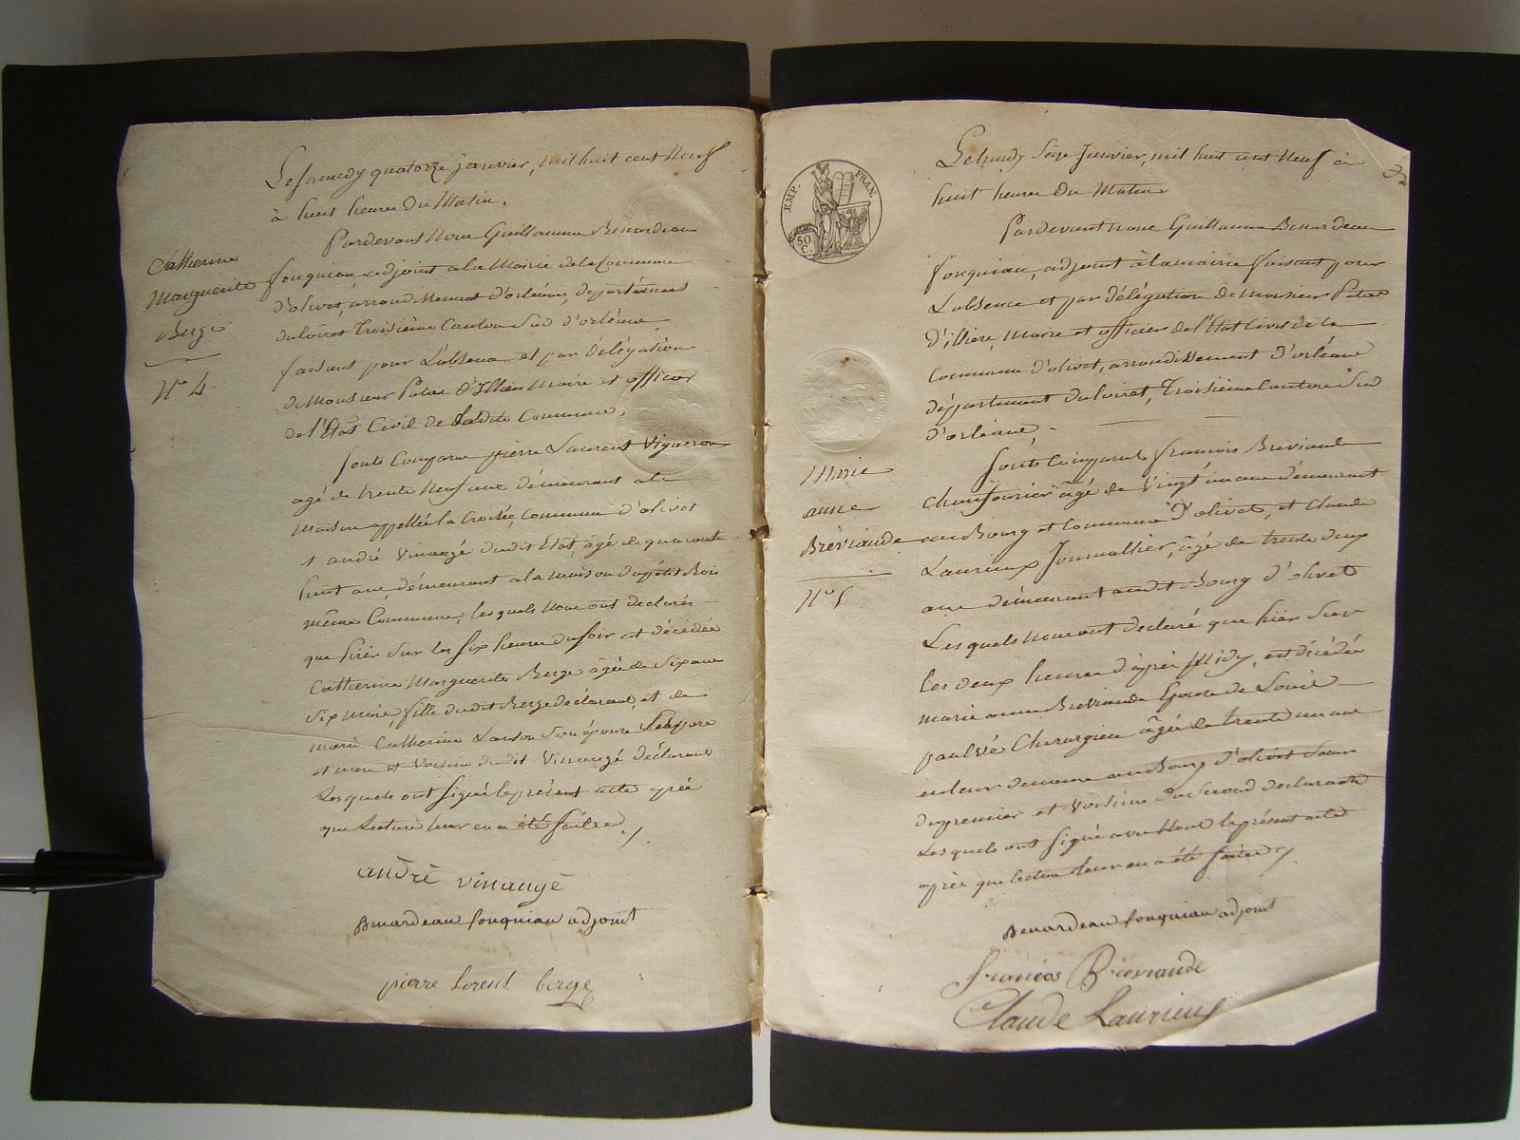 Le samedy quatorze janvier, mil huit cent Neuf
à huit heures du Matin.
Pardevant Nous Guillaume Benardeau
fouquiau adjoint a la Mairie de la Commune
d'olivet, arrondissement d'orléans, departement
du loiret Troisième Canton Sud d'orléans
faisant pour L'absence et par Délégation
de Monsieur Maire et officier
de l'Etat Civil de Ladite Commune,
Catherine
Marguerite
Berge
N° 4
Sont Comparus pierre Laurent Vigneron
agé de trente Neuf ans demeurant a la
Maison appellée la Commune d'olivet
t andré Vinaugé dudit Etat, agé de quarante
huit ans, demeurant a la maison du petit Bois
même Commune, lesquels Nous ont declarés
que hier sur les six heures du soir est décédée
Catherine Marguerite Berge agée de six ans
six mois, fille dudit Berge déclarant, et de
marie Catherine son épouse
et voisin dudit Vinaugé déclarant
Lesquels ont signé le présent acte après
que Lecture leur en a été faite
andrè vinaugé
Benardeau fouquiau adjoint
pierre lorent berge
EMP. FRAN.
50 C.
Le lundy seize Janvier, mil huit cent Neuf à
huit heures du Matin
Pardevant nous Guillaume Benardeau
fouquiau, adjoint à la mairie faisant pour
L'absence et par délégation de Monsieur
d'illiers, Maire et officier de l'Etat Civil de la
Commune d'olivet, arrondissement d'orléans
département du loiret, Troisième Canton Sud
d'orléans,
Marie
anne
Brèviaude
N° 5
Sont Comparus françois Breviaude
agé de Vingt un ans demeurant
au Bourg et Commune d'olivet, et Claude
Laurieux Journallier, agé de trente deux
ans demeurant audit Bourg d'olivet
Lesquels nous ont declaré que hier sur
les deux heures d'après Midy, est décédée
marie anne Breviaude de Louis
Chirurgien âgée de trente un ans
au Bourg d'olivet Soeur
du premier et Voisine du Second declarants
Lesquels ont signé avec Nous le présent acte
après que lecture leur en a été faite
Benardeau fouquiau adjoint
francois Breviaude
Claude Laurieux